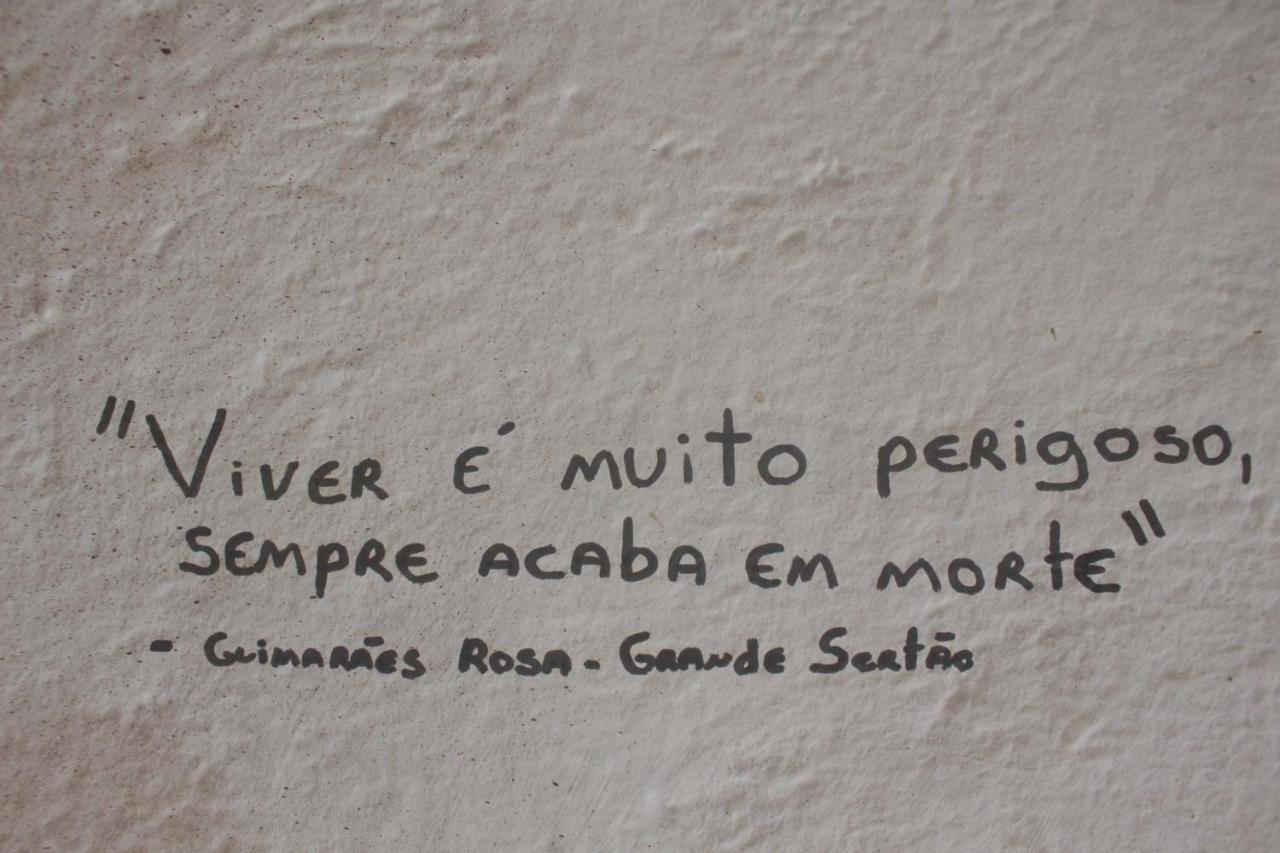 "Viver é muito perigoso,
sempre acaba em morte"
- Guimarães Rosa - Grande Sertão